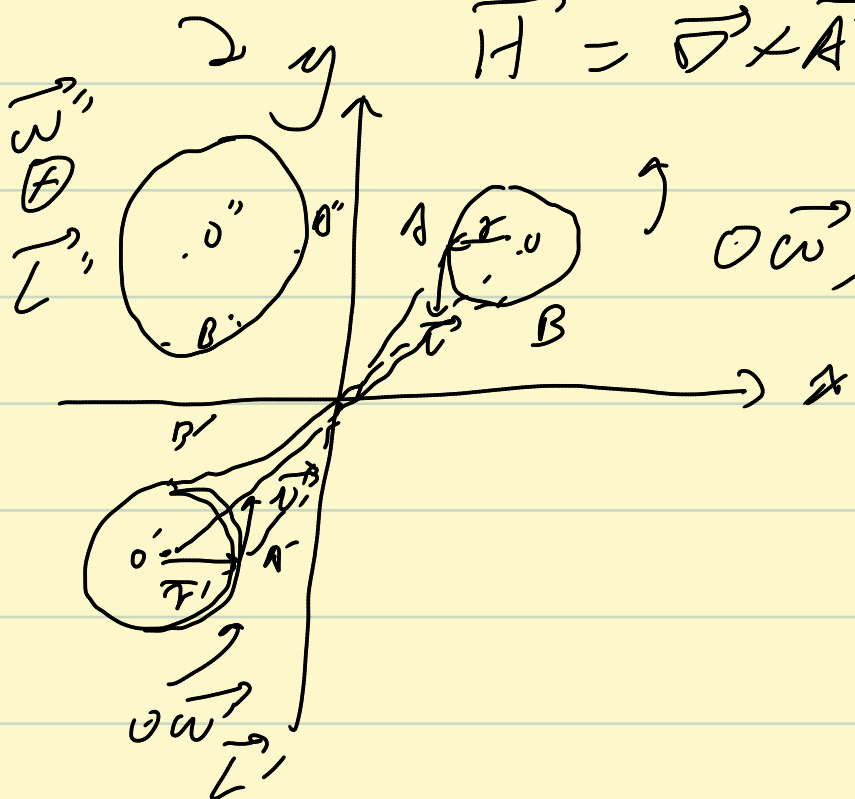 y
H⃗ = ∇⃗ × A⃗
ω⃗''
⊗
L⃗''
O''
A''
B''
A
r
O
v⃗
B
⊙ ω⃗
x
B'
O'
r⃗'
v⃗'
A'
⊙ ω⃗'
L⃗'